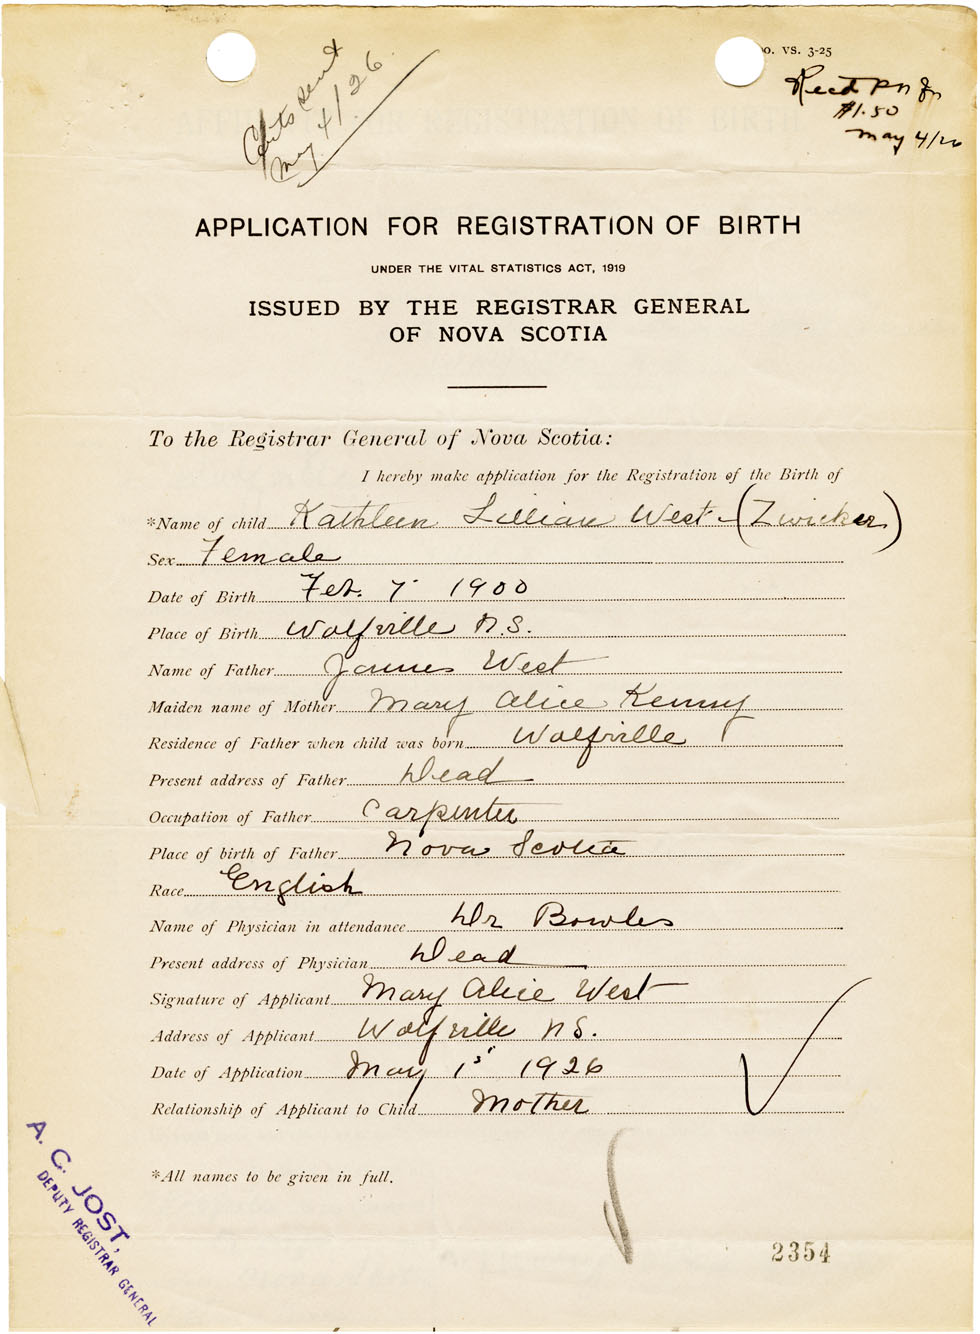 o. VS. 3-25
Certs sent
May 4/26.
Recd PN
$1.50
May 4/26
APPLICATION FOR REGISTRATION OF BIRTH
UNDER THE VITAL STATISTICS ACT, 1919
ISSUED BY THE REGISTRAR GENERAL
OF NOVA SCOTIA
To the Registrar General of Nova Scotia:
I hereby make application for the Registration of the Birth of
*Name of child Kathleen Lillian West (Zwicker)
Sex Female
Date of Birth Feb. 7 1900
Place of Birth Wolfville N.S.
Name of Father James West
Maiden name of Mother Mary Alice Kenny
Residence of Father when child was born Wolfville
Present address of Father Dead
Occupation of Father Carpenter
Place of birth of Father Nova Scotia
Race English
Name of Physician in attendance Dr Bowles
Present address of Physician Dead
Signature of Applicant Mary Alice West
Address of Applicant Wolfville NS.
Date of Application May 1st 1926
Relationship of Applicant to Child Mother
*All names to be given in full.
A. C. JOST,
DEPUTY REGISTRAR GENERAL
2354